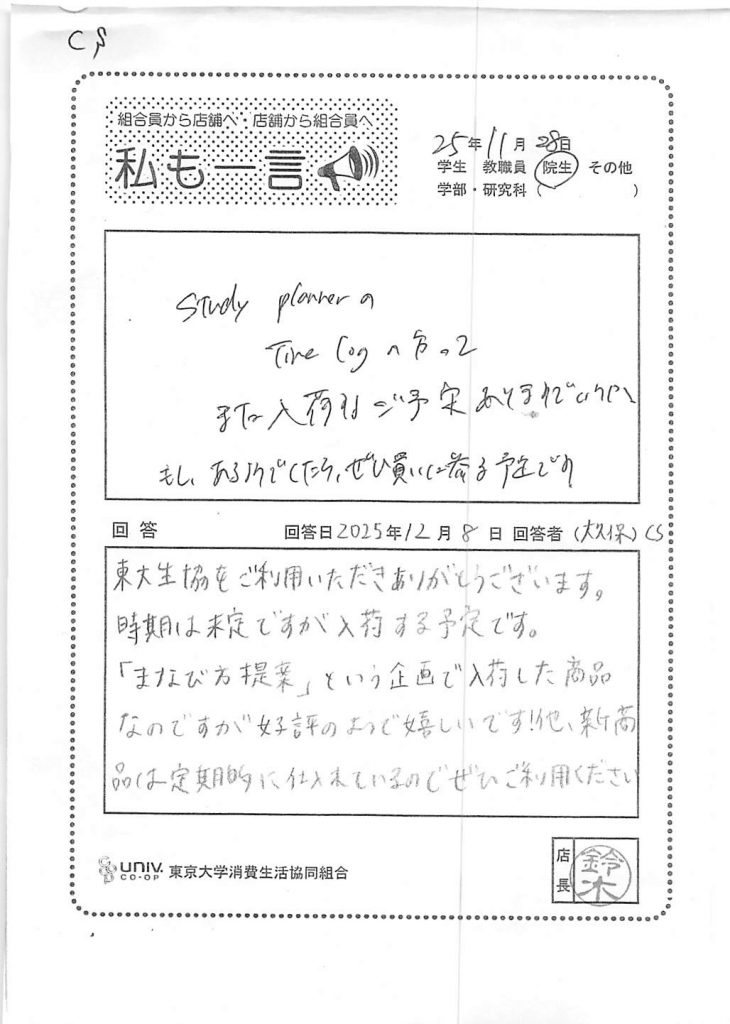 CS
組合員から店舗へ・店舗から組合員へ
私も一言
25年11月28日
学生 教職員 院生 その他
学部・研究科( )
Study plannerの
Time Logの方って
また入荷するご予定ありますでしょうか
もし、あるようでしたら、ぜひ買いに来る予定です
回答 回答日2025年12月8日 回答者(大久保)CS
東大生協をご利用いただきありがとうございます。
時期は未定ですが入荷する予定です。
「まなび方提案」という企画で入荷した商品
なのですが好評のようで嬉しいです!他、新商
品は定期的に仕入れているのでぜひご利用ください
UNIV.
CO-OP 東京大学消費生活協同組合
店長 鈴木